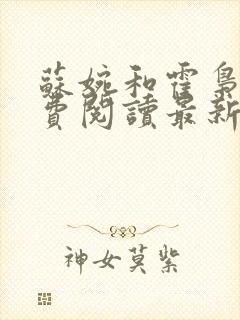 蘇婉和霍梟
費閱讀最新
神女莫紫